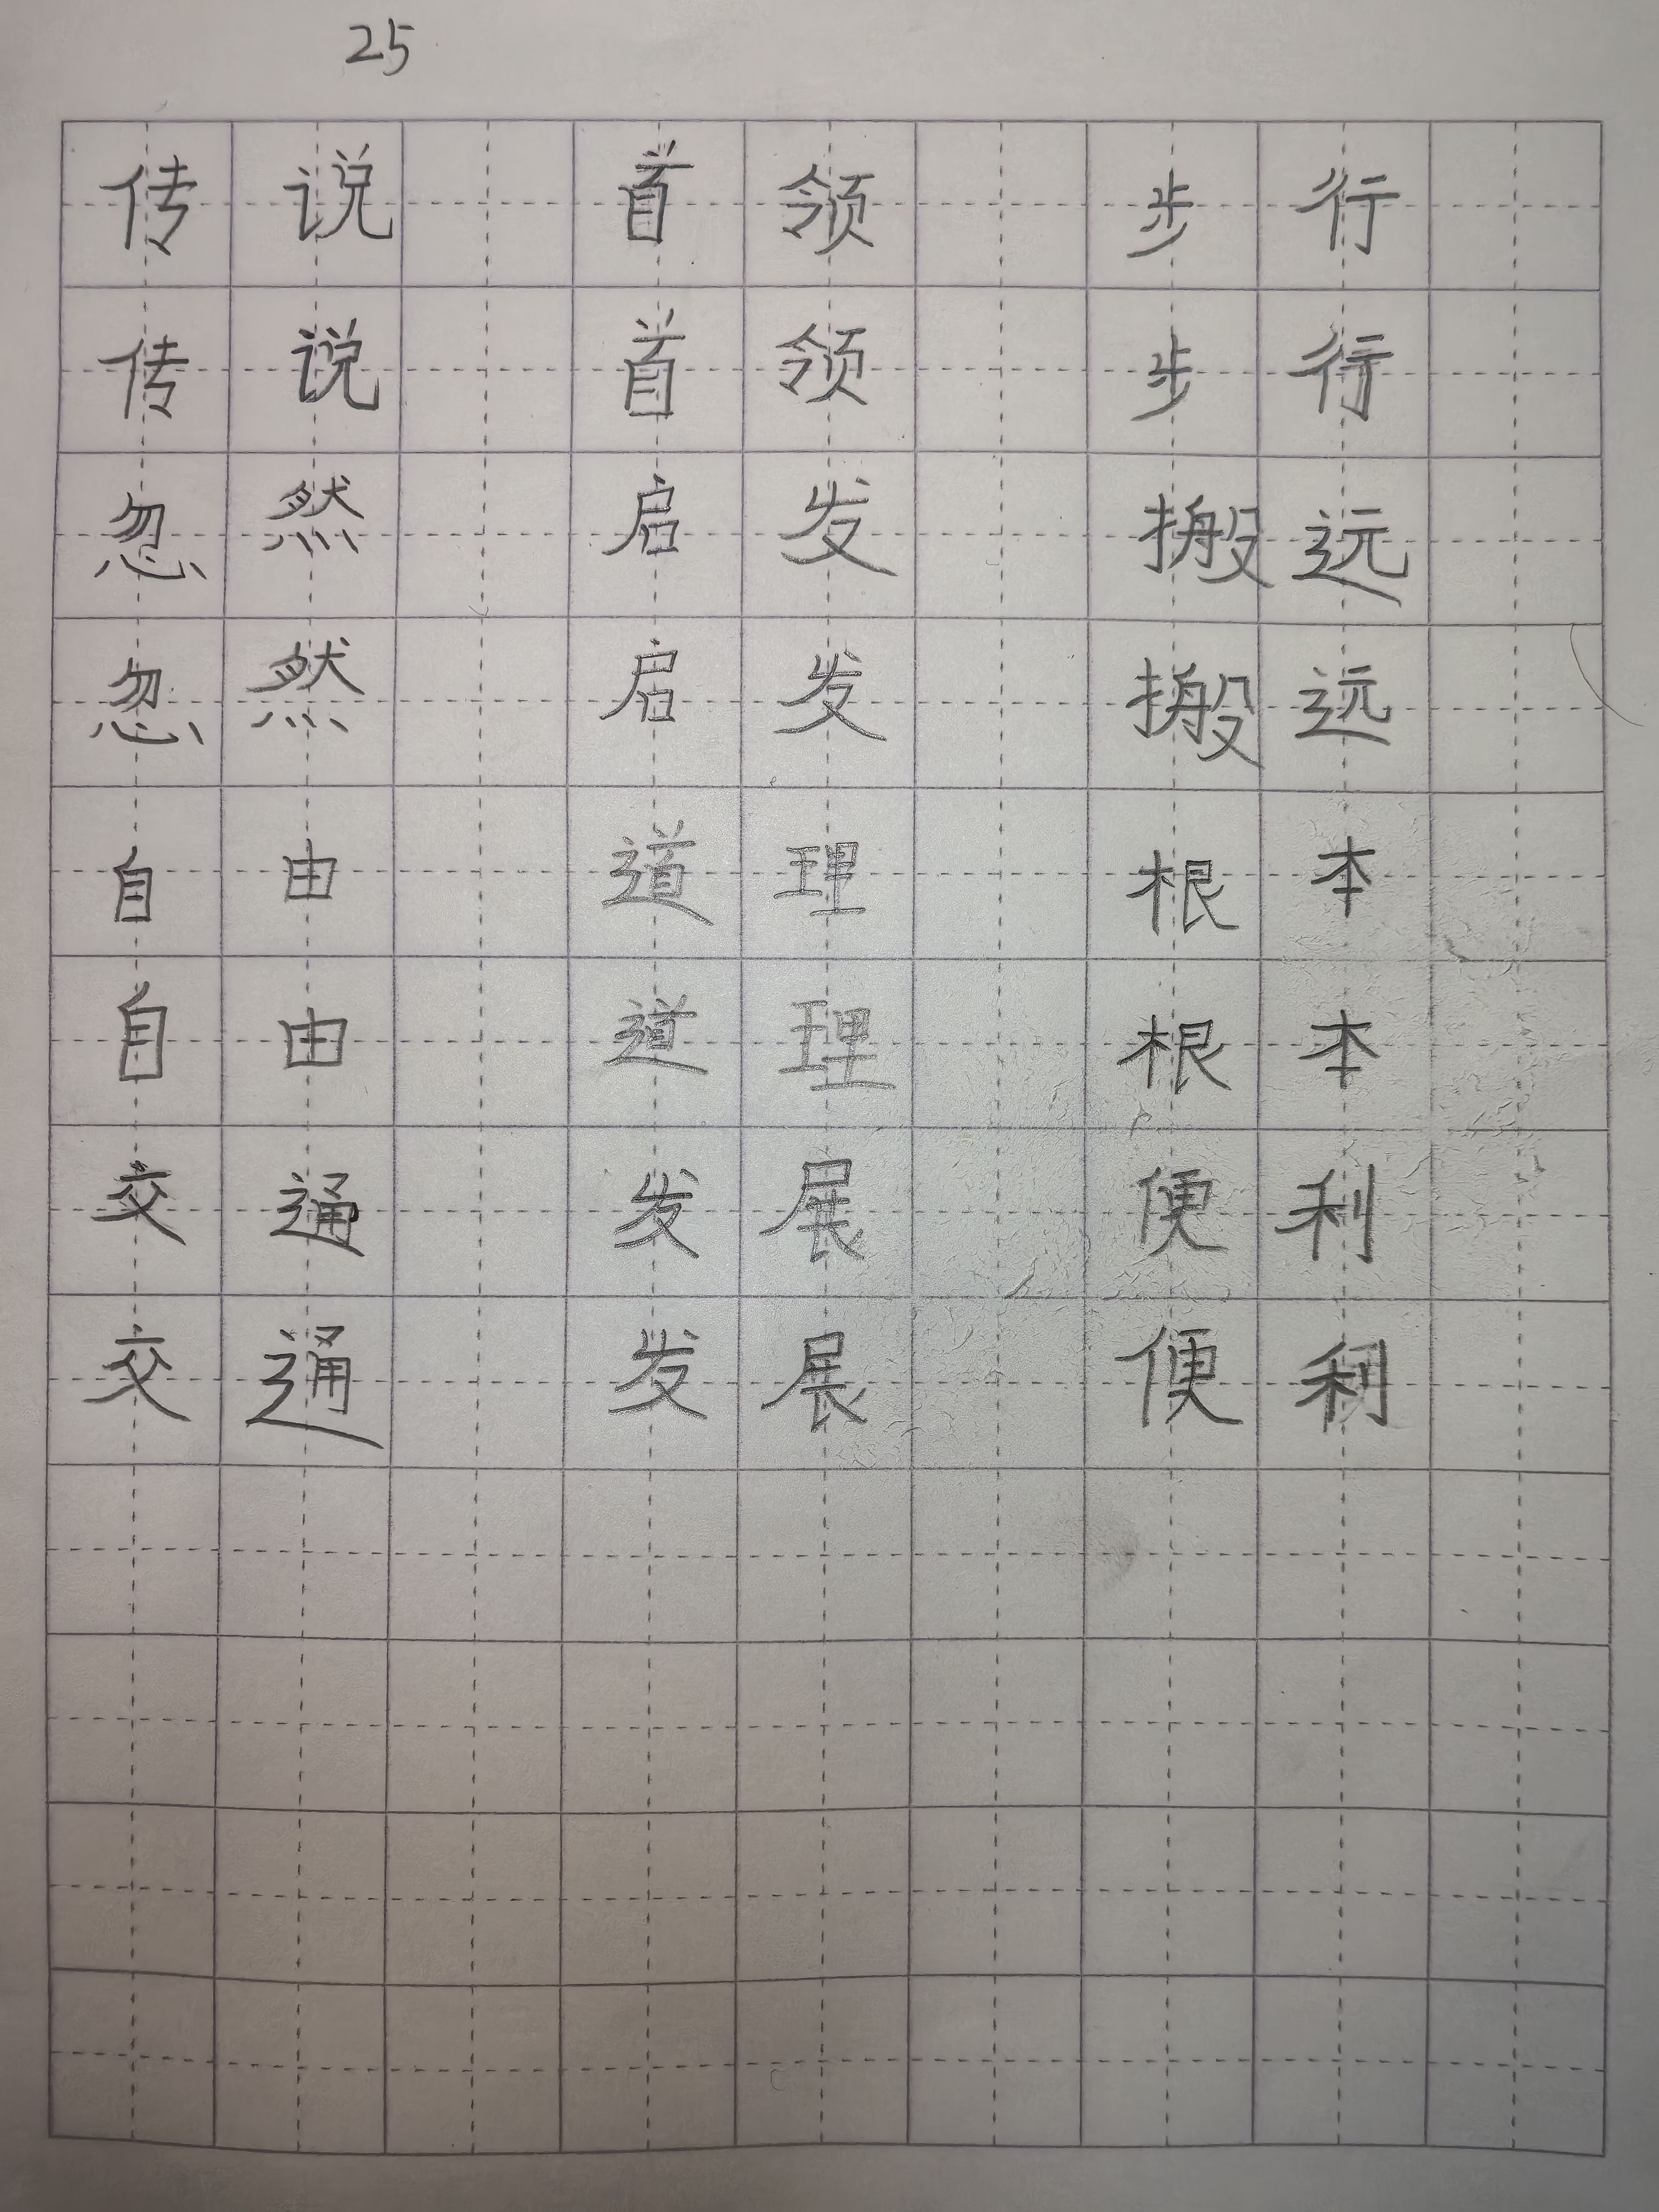 25
传说 首领 步行
传说 首领 步行
忽然 启发 搬远
忽然 启发 搬远
自由 道理 根本
自由 道理 根本
交通 发展 便利
交通 发展 便利